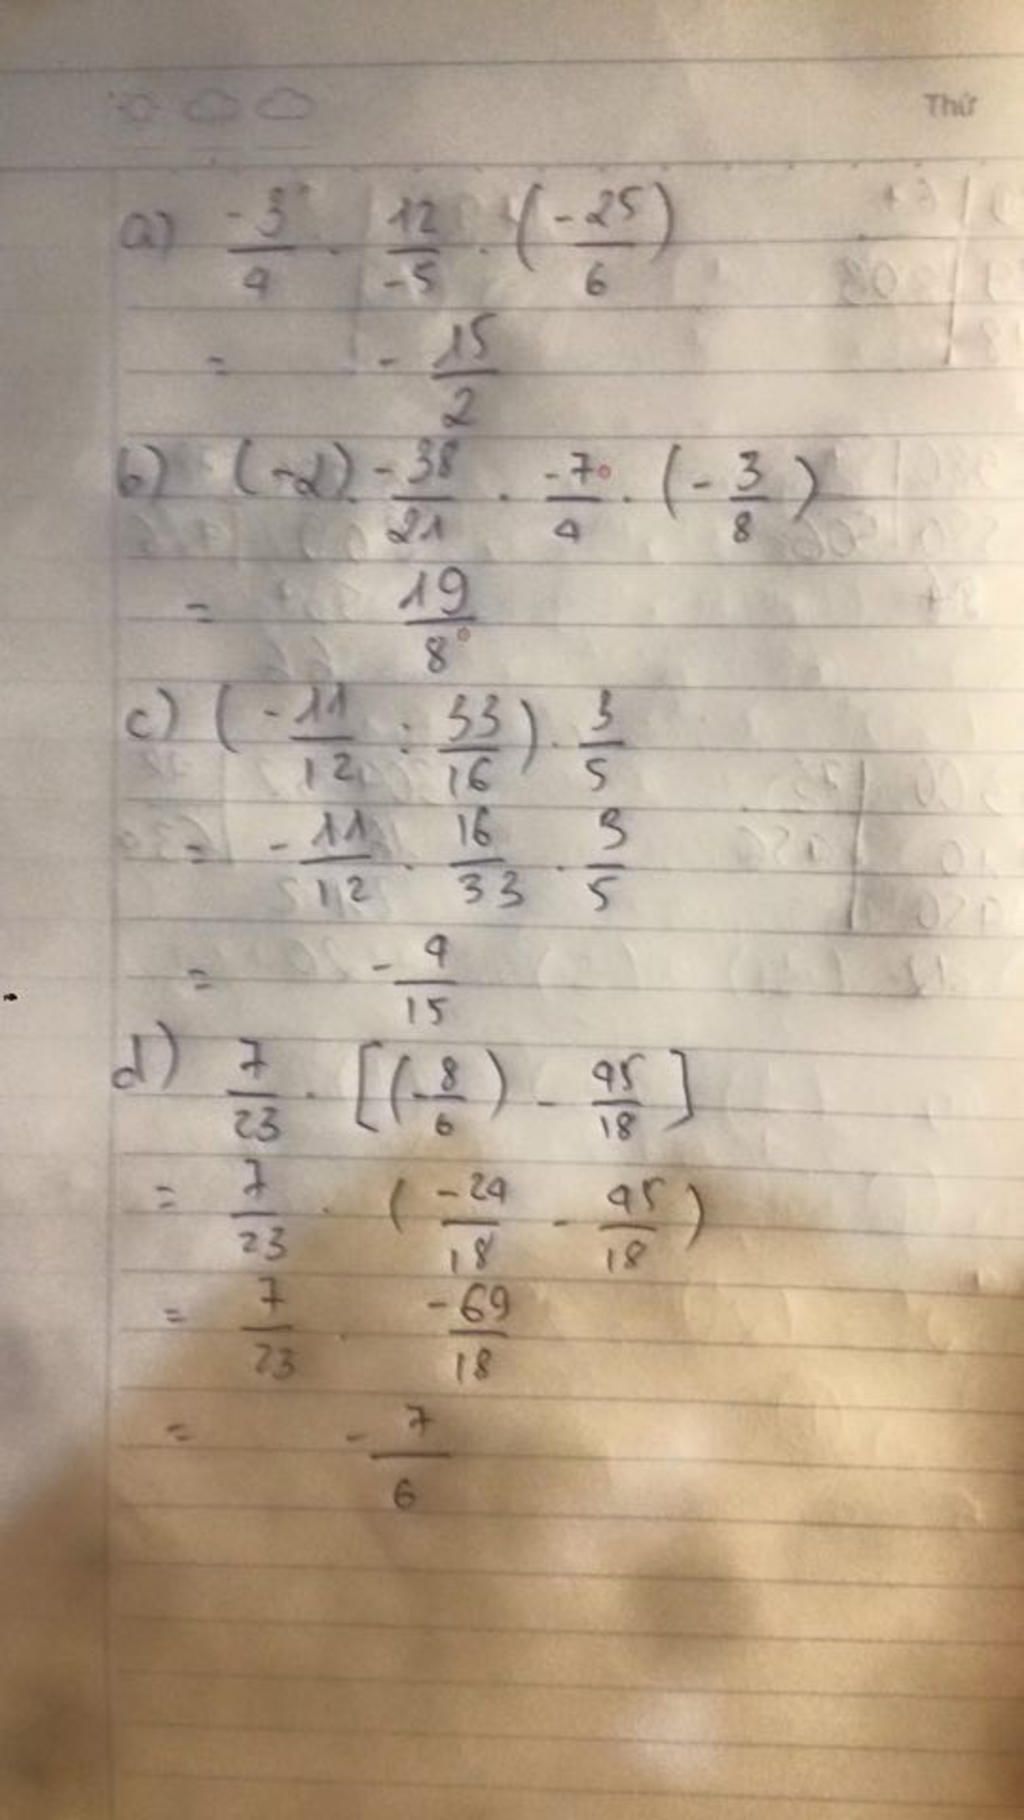 Thứ
a) -3/4 . 12/-5 . (-25/6)
= - 15/2
b) (-2) . -38/21 . -7/4 . (- 3/8)
= 19/8
c) (- 11/12 : 33/16) . 3/5
= - 11/12 . 16/33 . 3/5
= - 4/15
d) 7/23 . [(- 8/6) - 45/18]
= 7/23 . (-24/18 - 45/18)
= 7/23 . -69/18
= - 7/6